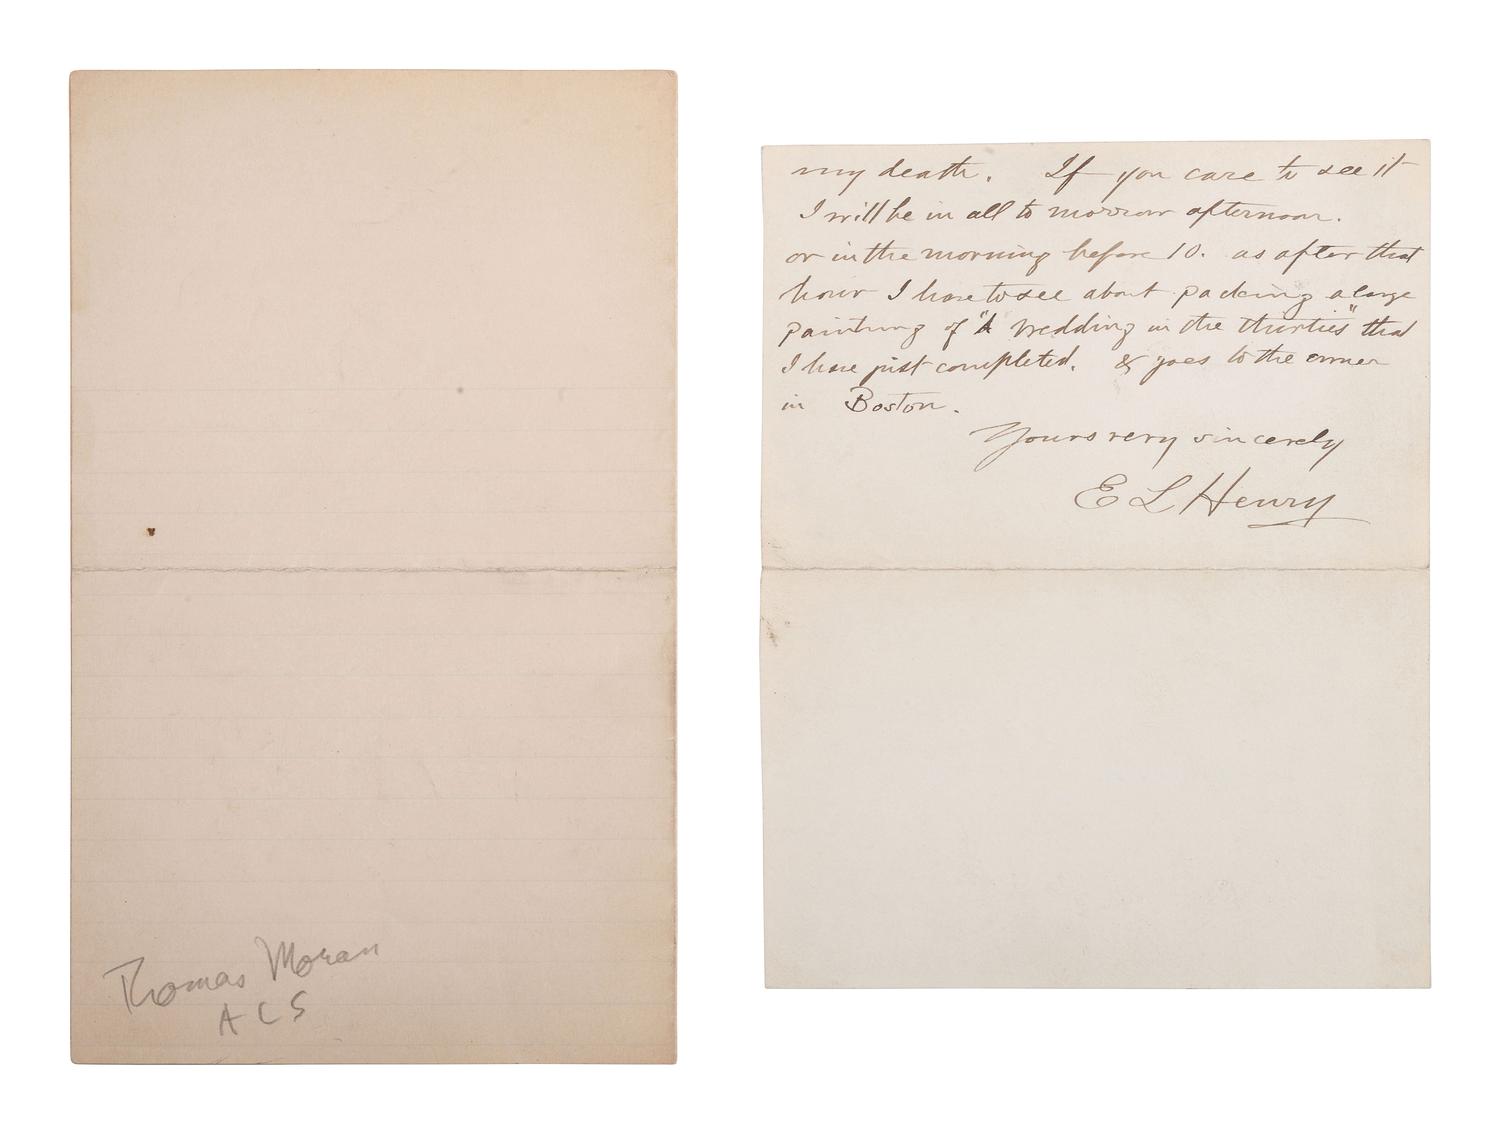 Thomas Moran
A L S
my death. If you care to see it
I will be in all to morrow afternoon.
or in the morning before 10. as after that
hour I have to see about packing a large
painting of "A Wedding in the thirties" that
I have just completed. & goes to the owner
in Boston.
Yours very sincerely
E L Henry